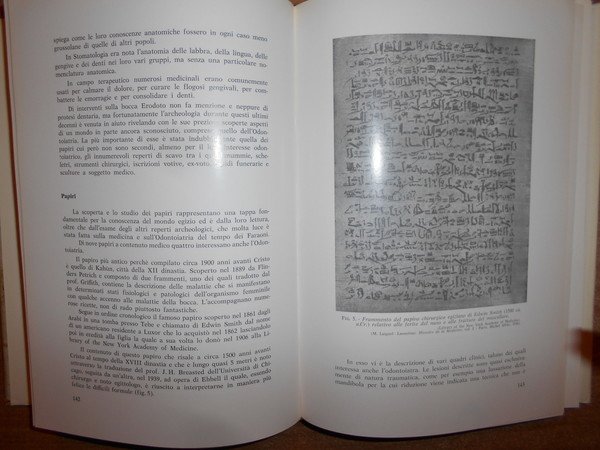 spiega come le loro conoscenze anatomiche fossero in ogni caso meno
grossolane di quelle di altri popoli.
In Stomatologia era nota l'anatomia delle labbra, della lingua, delle
gengive e dei denti nei loro vari gruppi, ma senza una particolare no-
menclatura anatomica.
In campo terapeutico numerosi medicinali erano comunemente
usati per calmare il dolore, per curare le flogosi gengivali, per com-
battere le emorragie e per consolidare i denti.
Di interventi sulla bocca Erodoto non fa menzione e neppure di
protesi dentaria, ma fortunatamente l'archeologia durante questi ultimi
decenni è venuta in aiuto rivelando con le sue preziose scoperte aspetti
di un mondo in parte ancora sconosciuto, compreso quello dell'Odon-
toiatria. La più importante di esse è stata indubbiamente quella dei
papiri cui però non sono secondi, almeno per il loro interesse odon-
toiatrico, gli innumerevoli reperti di scavo tra i quali mummie, sche-
letri, strumenti chirurgici, iscrizioni votive, ex-voto, di funerarie e
sculture a soggetto medico.
Papiri
La scoperta e lo studio dei papiri rappresentano una tappa fon-
damentale per la conoscenza del mondo egizio ed è dalla loro lettura,
oltre che dall'esame degli altri reperti archeologici, che molta luce è
stata fatta sulla medicina e sull'Odontoiatria del tempo dei Faraoni.
Di nove papiri a contenuto medico quattro interessano anche l'Odon-
toiatria.
Il papiro più antico perché compilato circa 1900 anni avanti Cristo
è quello di Kahun, città della XII dinastia. Scoperto nel 1889 da Flin-
ders Petrich e composto di due frammenti, uno dei quali tradotto dal
prof. Griffith, contiene la descrizione delle malattie che si manifestano
in determinati stati fisiologici e patologici dell'organismo femminile
con qualche accenno alle malattie della bocca. L'accompagnano nume-
rose ricette, non di rado piuttosto fantastiche.
Segue in ordine cronologico il famoso papiro scoperto nel 1861 dagli
Arabi in una tomba presso Tebe e chiamato di Edwin Smith dal nome
di un americano residente a Luxor che lo acquistò nel 1862 lasciandolo
poi in eredità alla figlia la quale a sua volta lo donò nel 1906 alla Li-
brery of the New York Academy of Medicine.
Il contenuto di questo papiro che risale a circa 1500 anni avanti
Cristo al tempo della XVIII dinastia e che è lungo quasi 5 metri è noto
attraverso la traduzione del prof. J. H. Breasted dell'Università di Chi-
cago, seguita da un'altra, nel 1939, ad opera di Ebbell il quale, essendo
chirurgo e noto egittologo, è riuscito a interpretarne in maniera più
felice le difficili formule (fig. 5).
142
FIG. 5. - Frammento del papiro chirurgico egiziano di Edwin Smith (1500 ca.
a.Cr.) relativo alle ferite del naso e alle fratture del mascellare.
(Library of the New York Academy of Medicine)
In esso vi è la descrizione di vari quadri clinici, taluno dei quali
interessa anche l'odontoiatra. Le lesioni descritte sono quasi esclusiva-
mente di natura traumatica, come per esempio una lussazione della
mandibola per la cui riduzione viene indicata una tecnica che
143